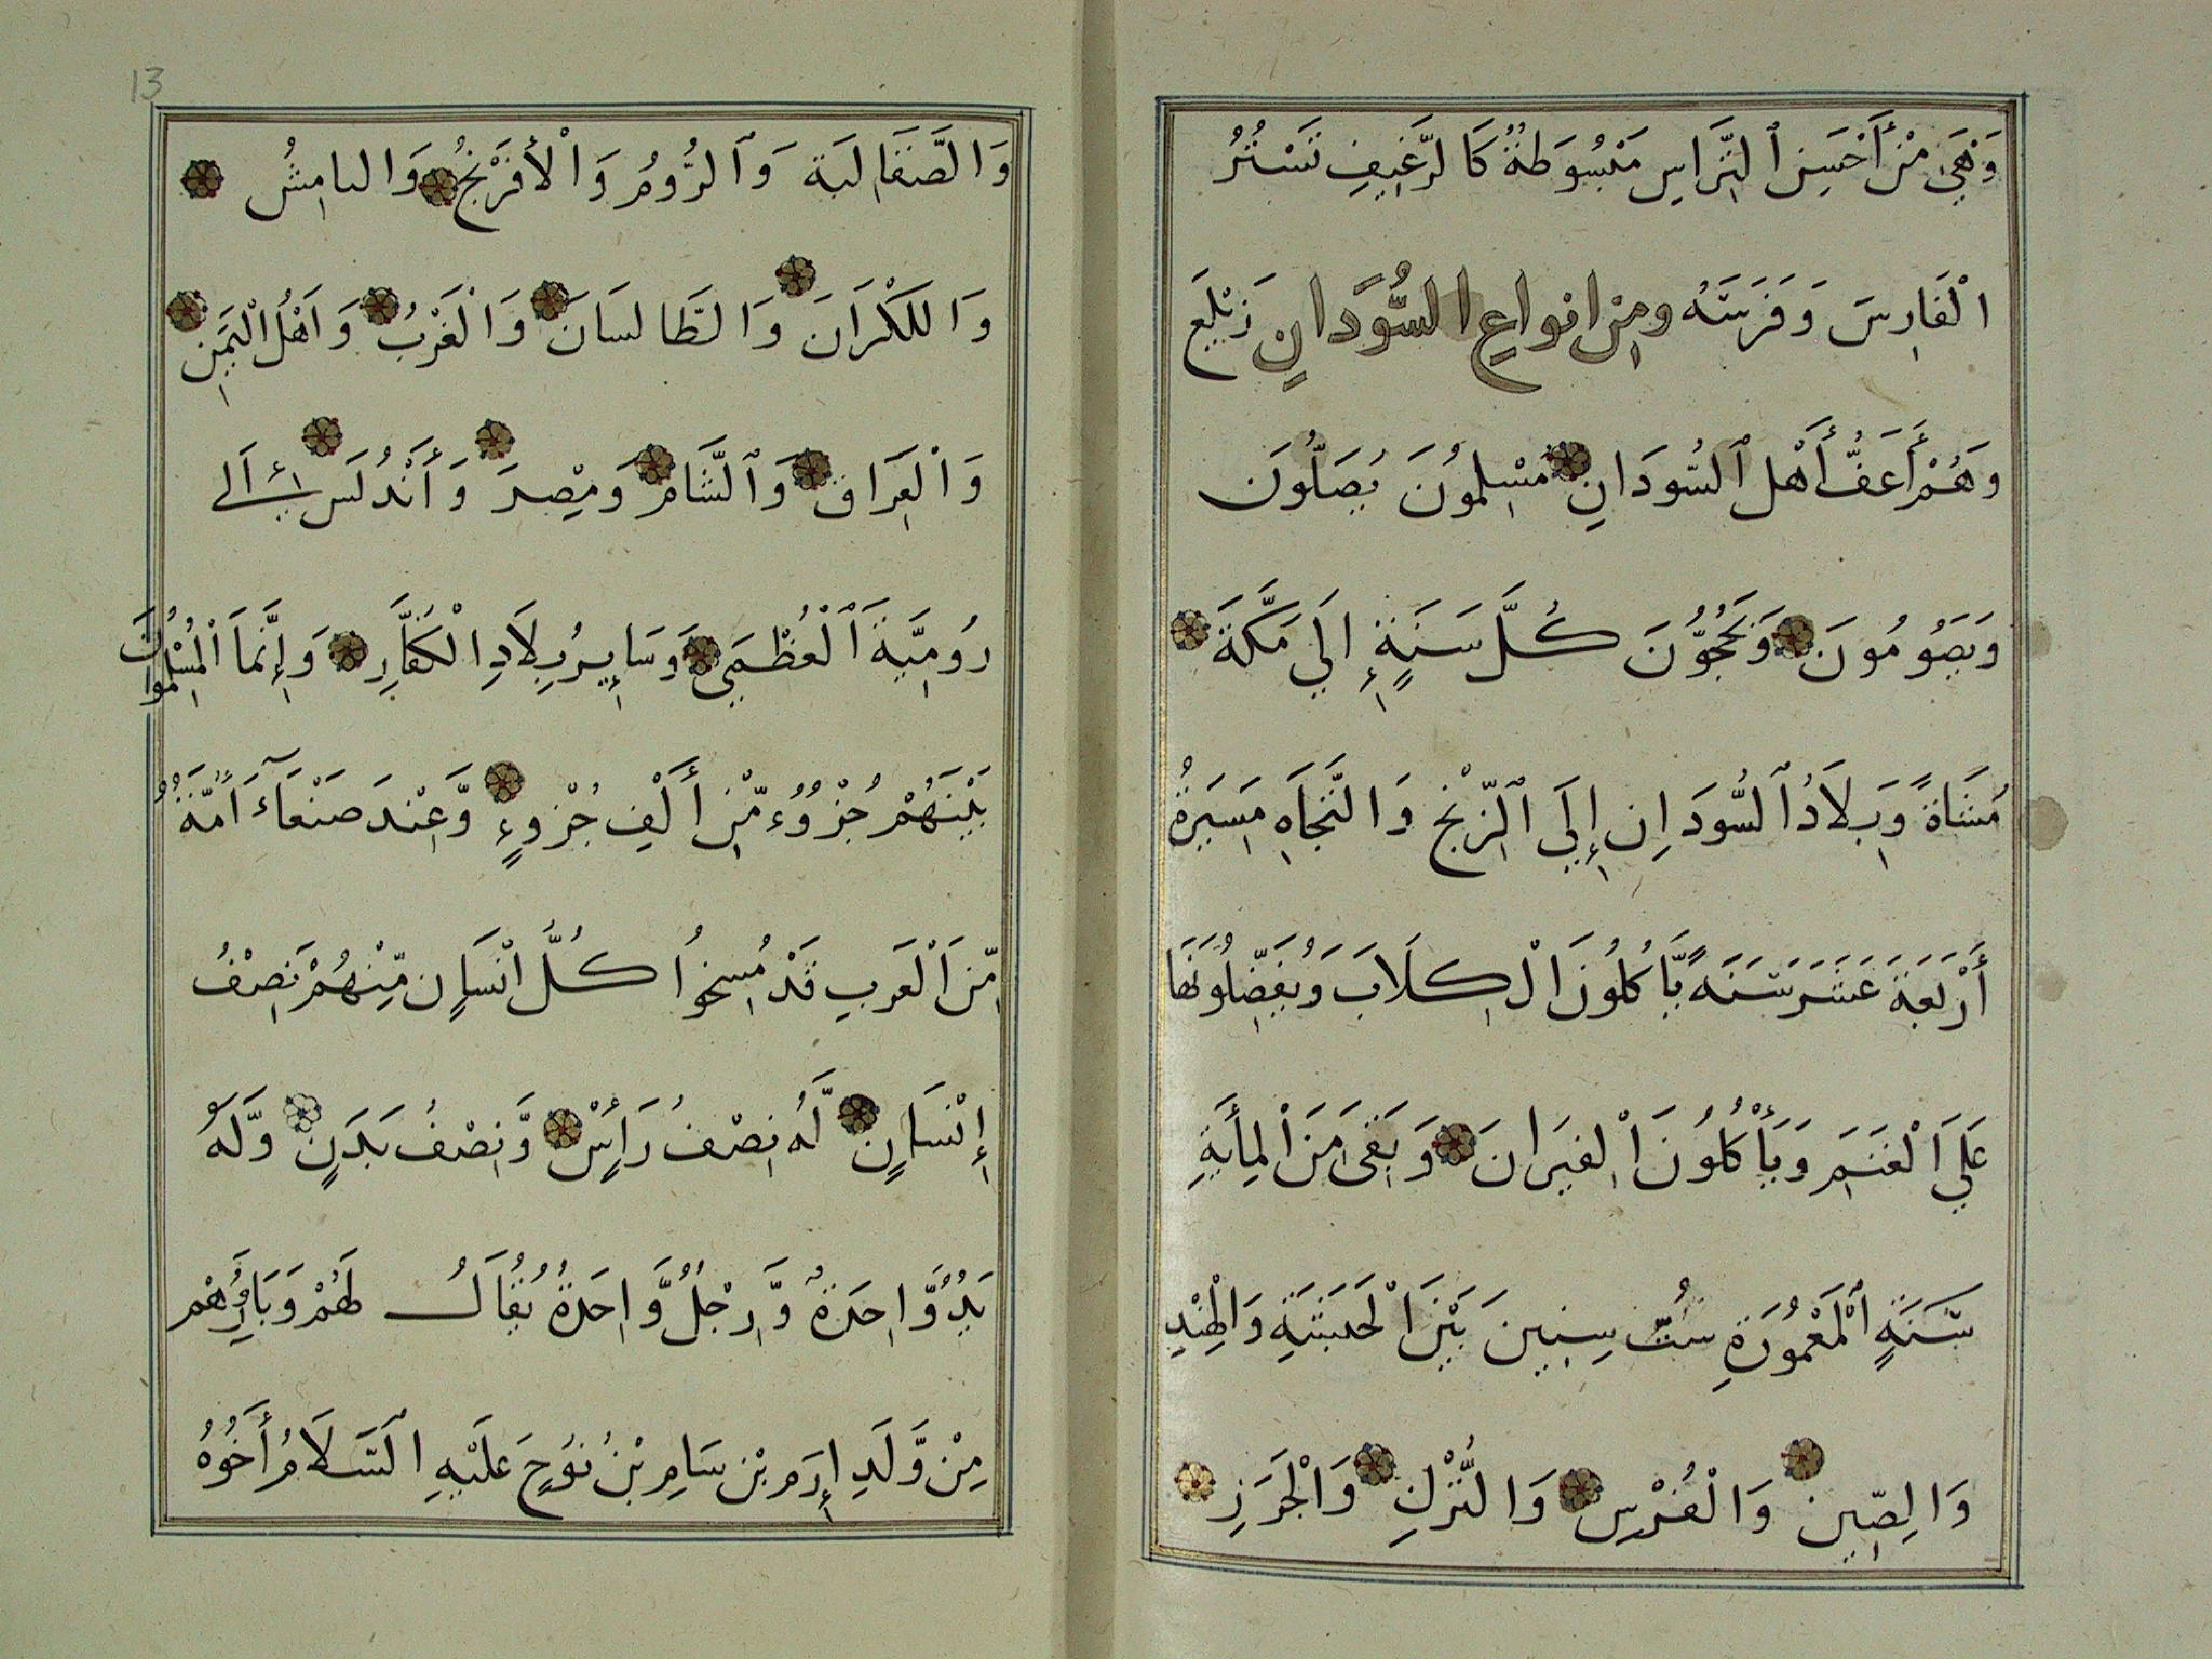 وَهَيَ مْنْ أَحْسَنِ ٱلتِّرَاسِ مَبْسُوَطةٌ كَالرَّغِيفِ تَسْتُرُ
الْفَارِسَ وَفَرَسَهُ ومِن انواعِ السُّوَدَانِ زَيْلَعٍ
وَهُمْ أَعَفُّ أَهْل ٱلسُّودَانِ مْسْلِمُونَ يُصَلُّونَ
وَيَصَوُمُونَ وَيَحُجُّونَ كُلَّ سَنَةٍ إِلَي مَكَّةَ
مُشَاةً وَبِلاَدُ ٱلسُّودَانِ إِلَي ٱلزِّنْجِ وَالنَّجَاهِ مَسِيَرةُ
أَرْبَعَةَ عَشَرَ سَنَةً يَّاكُلُونَ الْكِلَابَ وَيُفَضِّلُوَنَهَا
عَلَي الْغَنَمِ وَيَأْكُلُونَ الْفيَرانَ وَبَقَى مَنَ الْمِأَيةِ
سَنَةٍ ٱلْمَعْمُورَةِ سُتُّ سِنِينَ بَيْنَ الْحَبَشَةِ وَالْهِنْدِ
وَالصِّينِ وَالْفُرْسِ وَالتُّرْكِ وَالْخَزَرِ
13
وَالصَّقَالِبَة وَٱلرُّومُ وَالْأفَرْنْجُ وَالنامِشُ
وَاللَكْرَانَ وَالطَالسَانَ وَالْغَرْبُ وَاَهْلُ الْيَمَنِ
وَالْعِرَاقِ وَٱلشَّامِ وَمِصْرَ وَأَنْدُلَس إِلَى
رُومِيَّةَ ٱلْعُظْمَي وَسَايِرُ بِلاَدِ الْكُفَّارِ وَإِنَّمَا الْمُسْلِمُونَ
بَيْنَهُمْ جُزْوُء مّْنِ أَلْفِ جُزْوءٍ وَّعِنْدَ صَنْعَآءَ اُمَّةٌ
مِّنَ الْعَربِ قَدْ مُسِخوُا كُلُّ انْسَانٍ مِّنْهُمْ نِصْفُ
إِنْسَانٍ لَّهُ نِصْفُ رَأسٍْ وَّنِصْفُ بَدَنٍ وَّلَهُ
يَدٌ وَّاحِدَةٌ وَّرِجْلٌ وَّاحِدَةٌ يُقَالُ لَهُمْ وَبَارُهُمْ
مِنْ وَّلَدِ إِرَم بْنِ سَامِ بْنُ نوُحٍ عَلَيْهِ السَّلَامُ أَخُوهُ